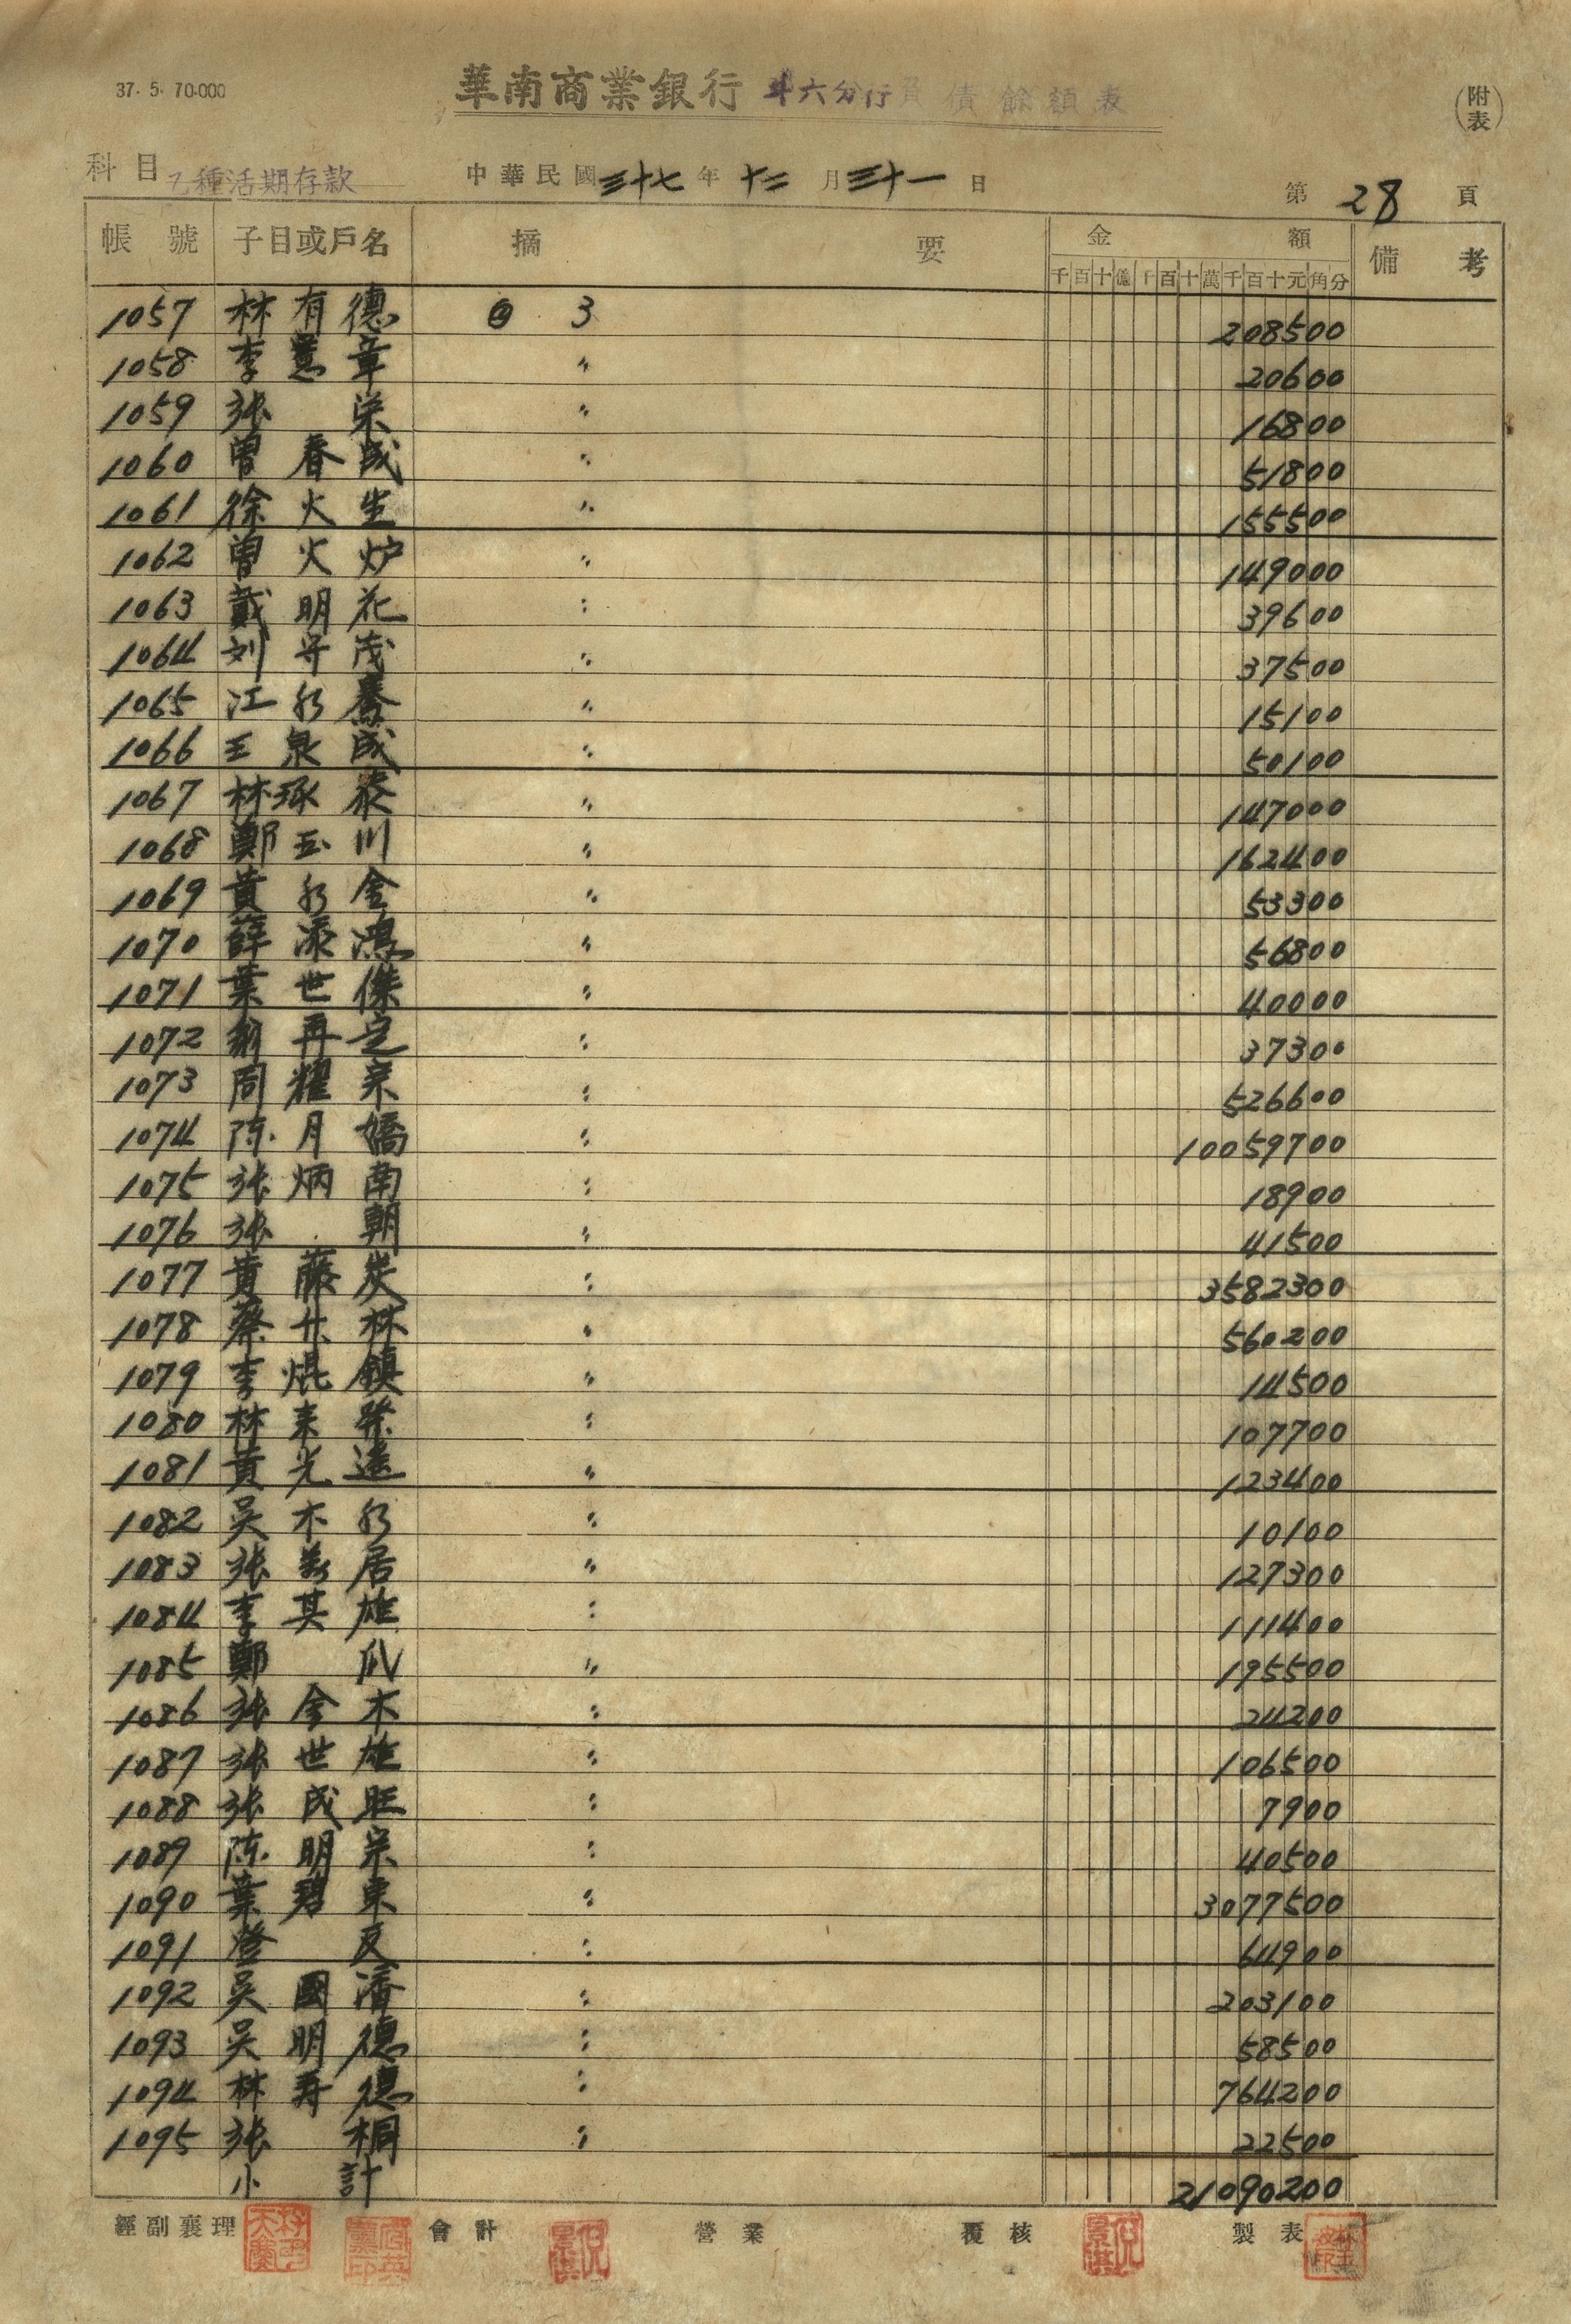 37. 5. 70.000
華南商業銀行 斗六分行 負債餘額表
(附表)
科目 乙種活期存款 中華民國三十七年十二月三十一日 第28頁
帳號 子目或戶名 摘要 金額 備考
千百十億千百十萬千百十元角分
1057 林有德 3 208500
1058 李憲章 〃 20600
1059 張栄 〃 16800
1060 曾春成 〃 51800
1061 徐火生 〃 155500
1062 曾火炉 〃 149000
1063 戴明花 〃 39600
1064 刘守茂 〃 37500
1065 江水 〃 15100
1066 王泉成 〃 50100
1067 林琢 〃 147000
1068 鄭玉川 〃 162400
1069 黄水金 〃 53300
1070 薛添鴻 〃 56800
1071 葉世傑 〃 40000
1072 翁再定 〃 37300
1073 周耀宗 〃 526600
1074 陈月嬌 〃 10059700
1075 张炳南 〃 18900
1076 张朝 〃 41500
1077 黄藤炭 〃 3582300
1078 蔡林 〃 560200
1079 李焜鎮 〃 14500
1080 林来 〃 107700
1081 黄光遠 〃 123400
1082 吳木水 〃 10100
1083 张居 〃 127300
1084 李其雄 〃 111400
1085 鄭爪 〃 195500
1086 张金木 〃 24200
1087 张世雄 〃 106500
1088 张成旺 〃 7900
1089 陈明宗 〃 40500
1090 葉碧東 〃 3077500
1091 詹反 〃 64900
1092 吳國清 〃 203100
1093 吳明德 〃 58500
1094 林寿德 〃 764200
1095 张桐 〃 22500
小計 21090200
經副襄理 會計 營業 覆核 製表